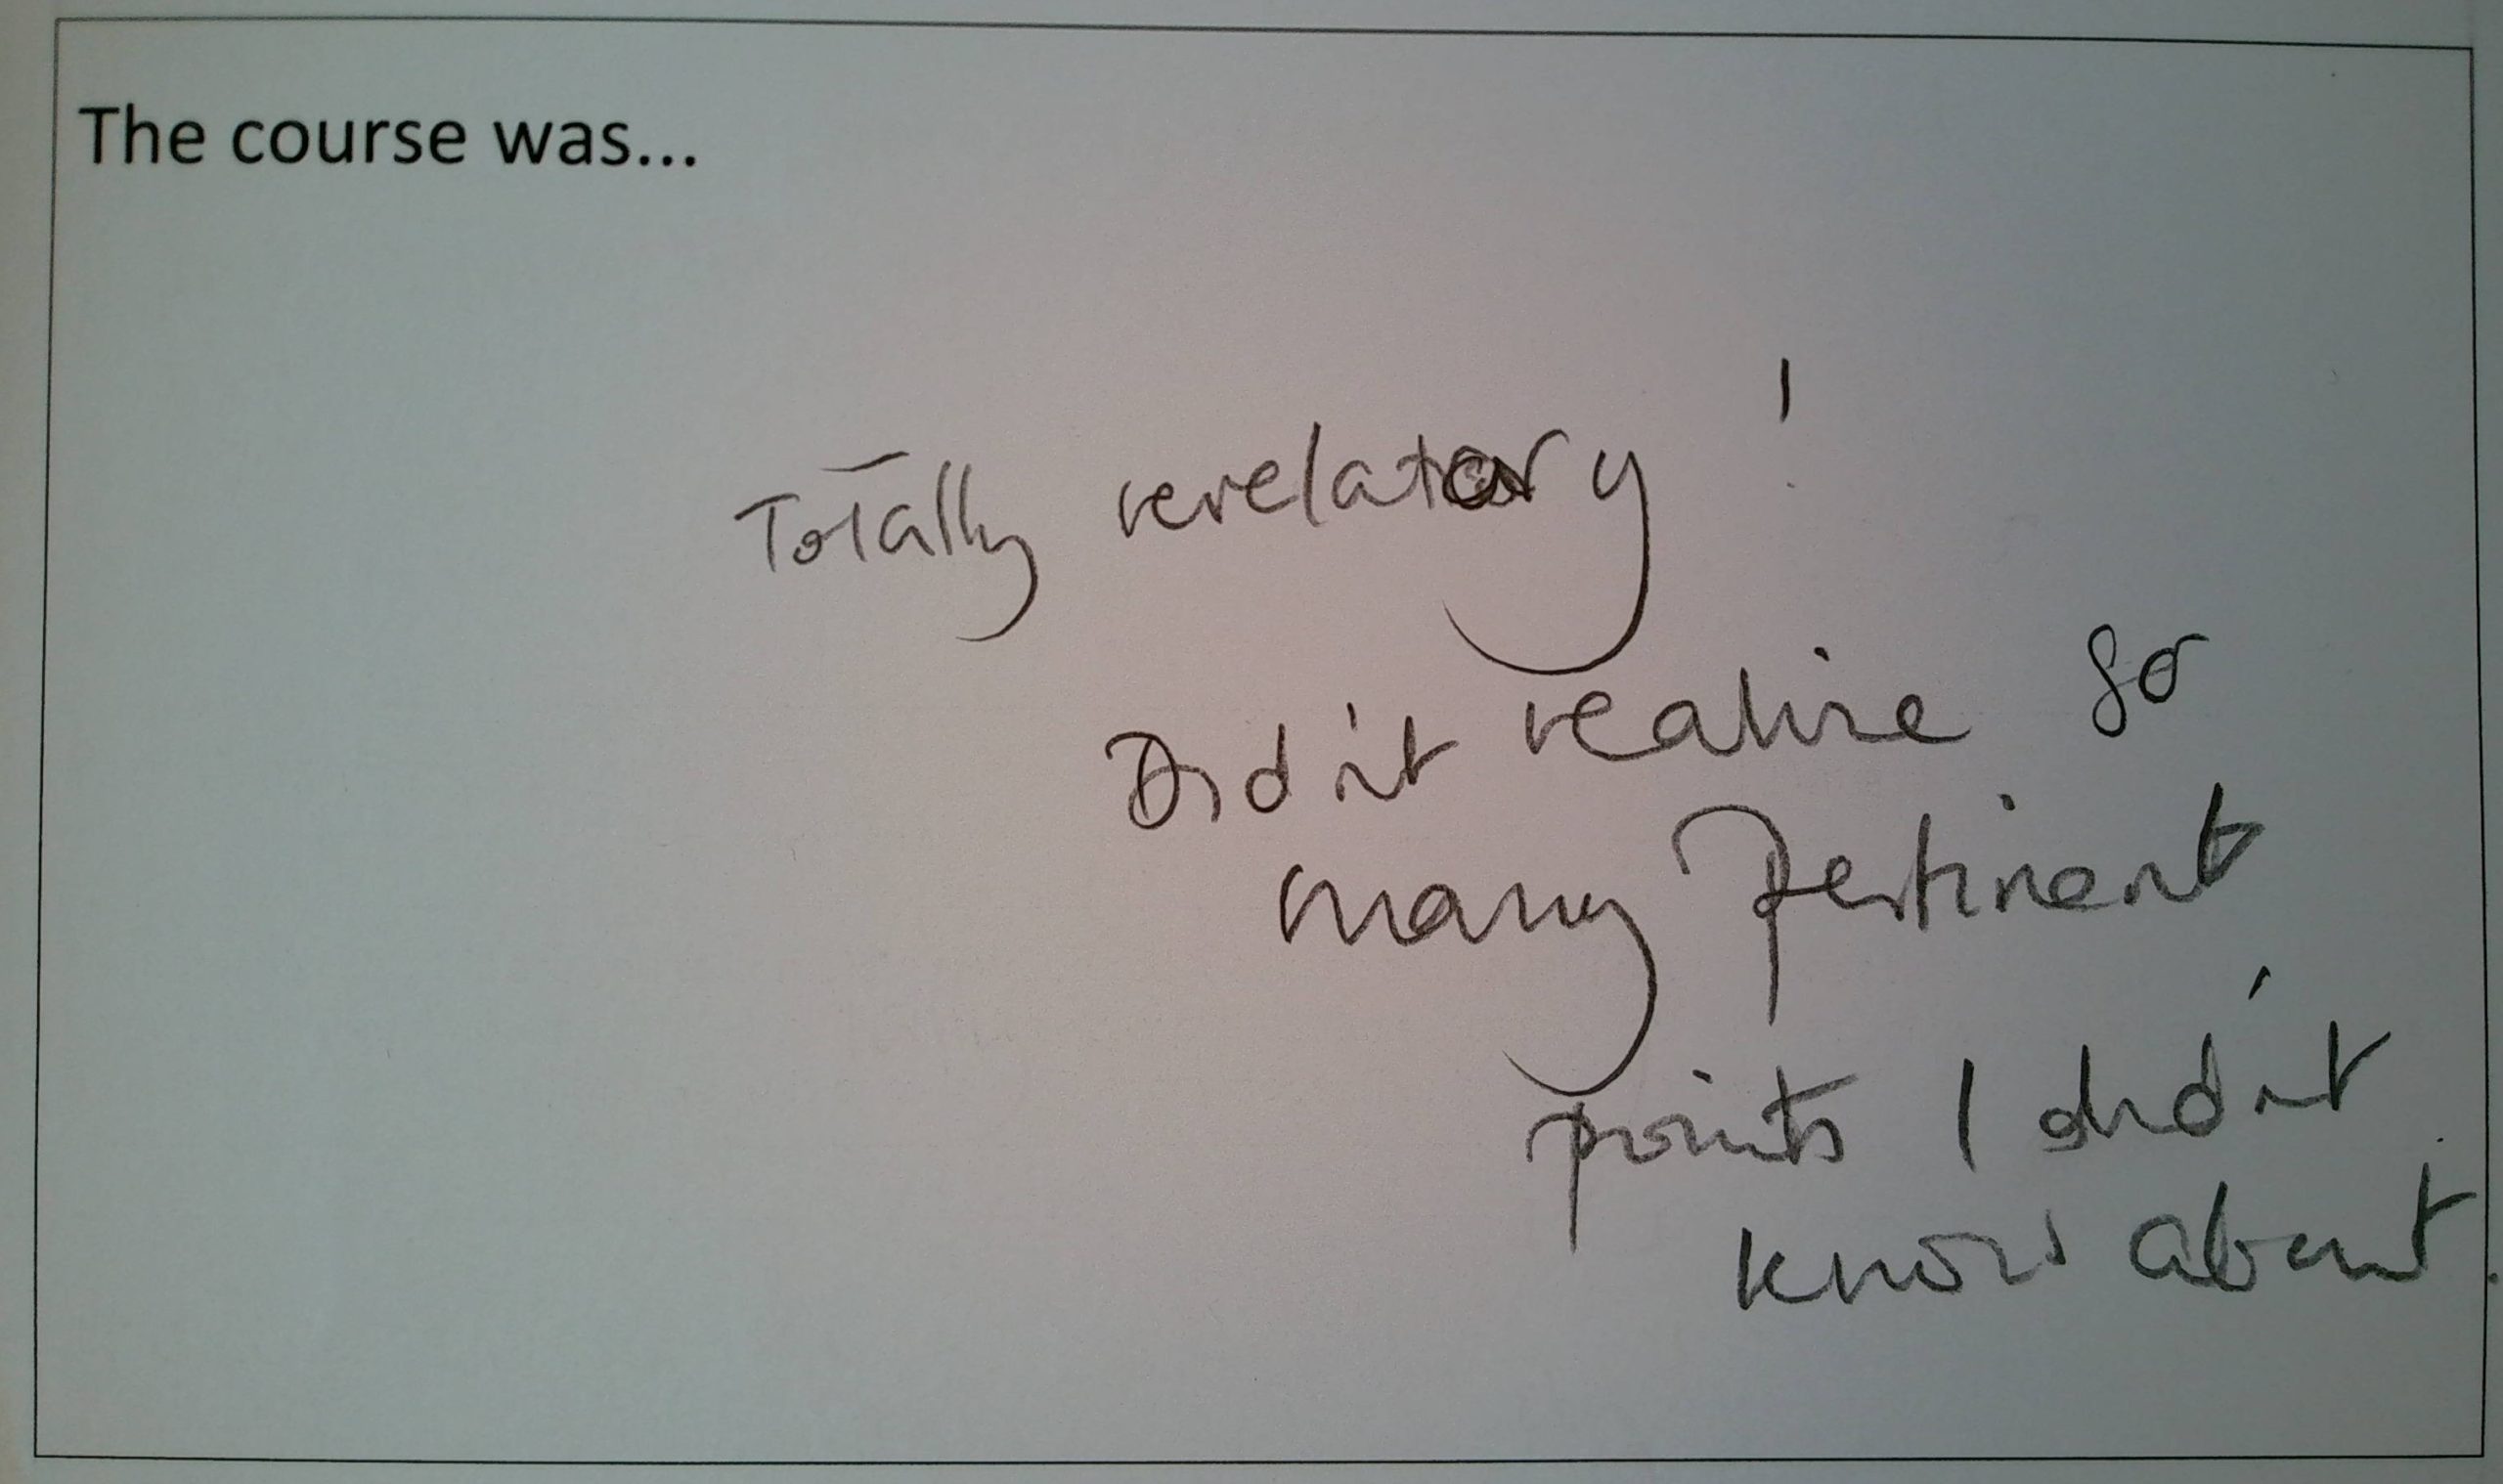 The course was...
Totally revelatory!
Didn't realise so
many pertinent
points I didn't
know about.